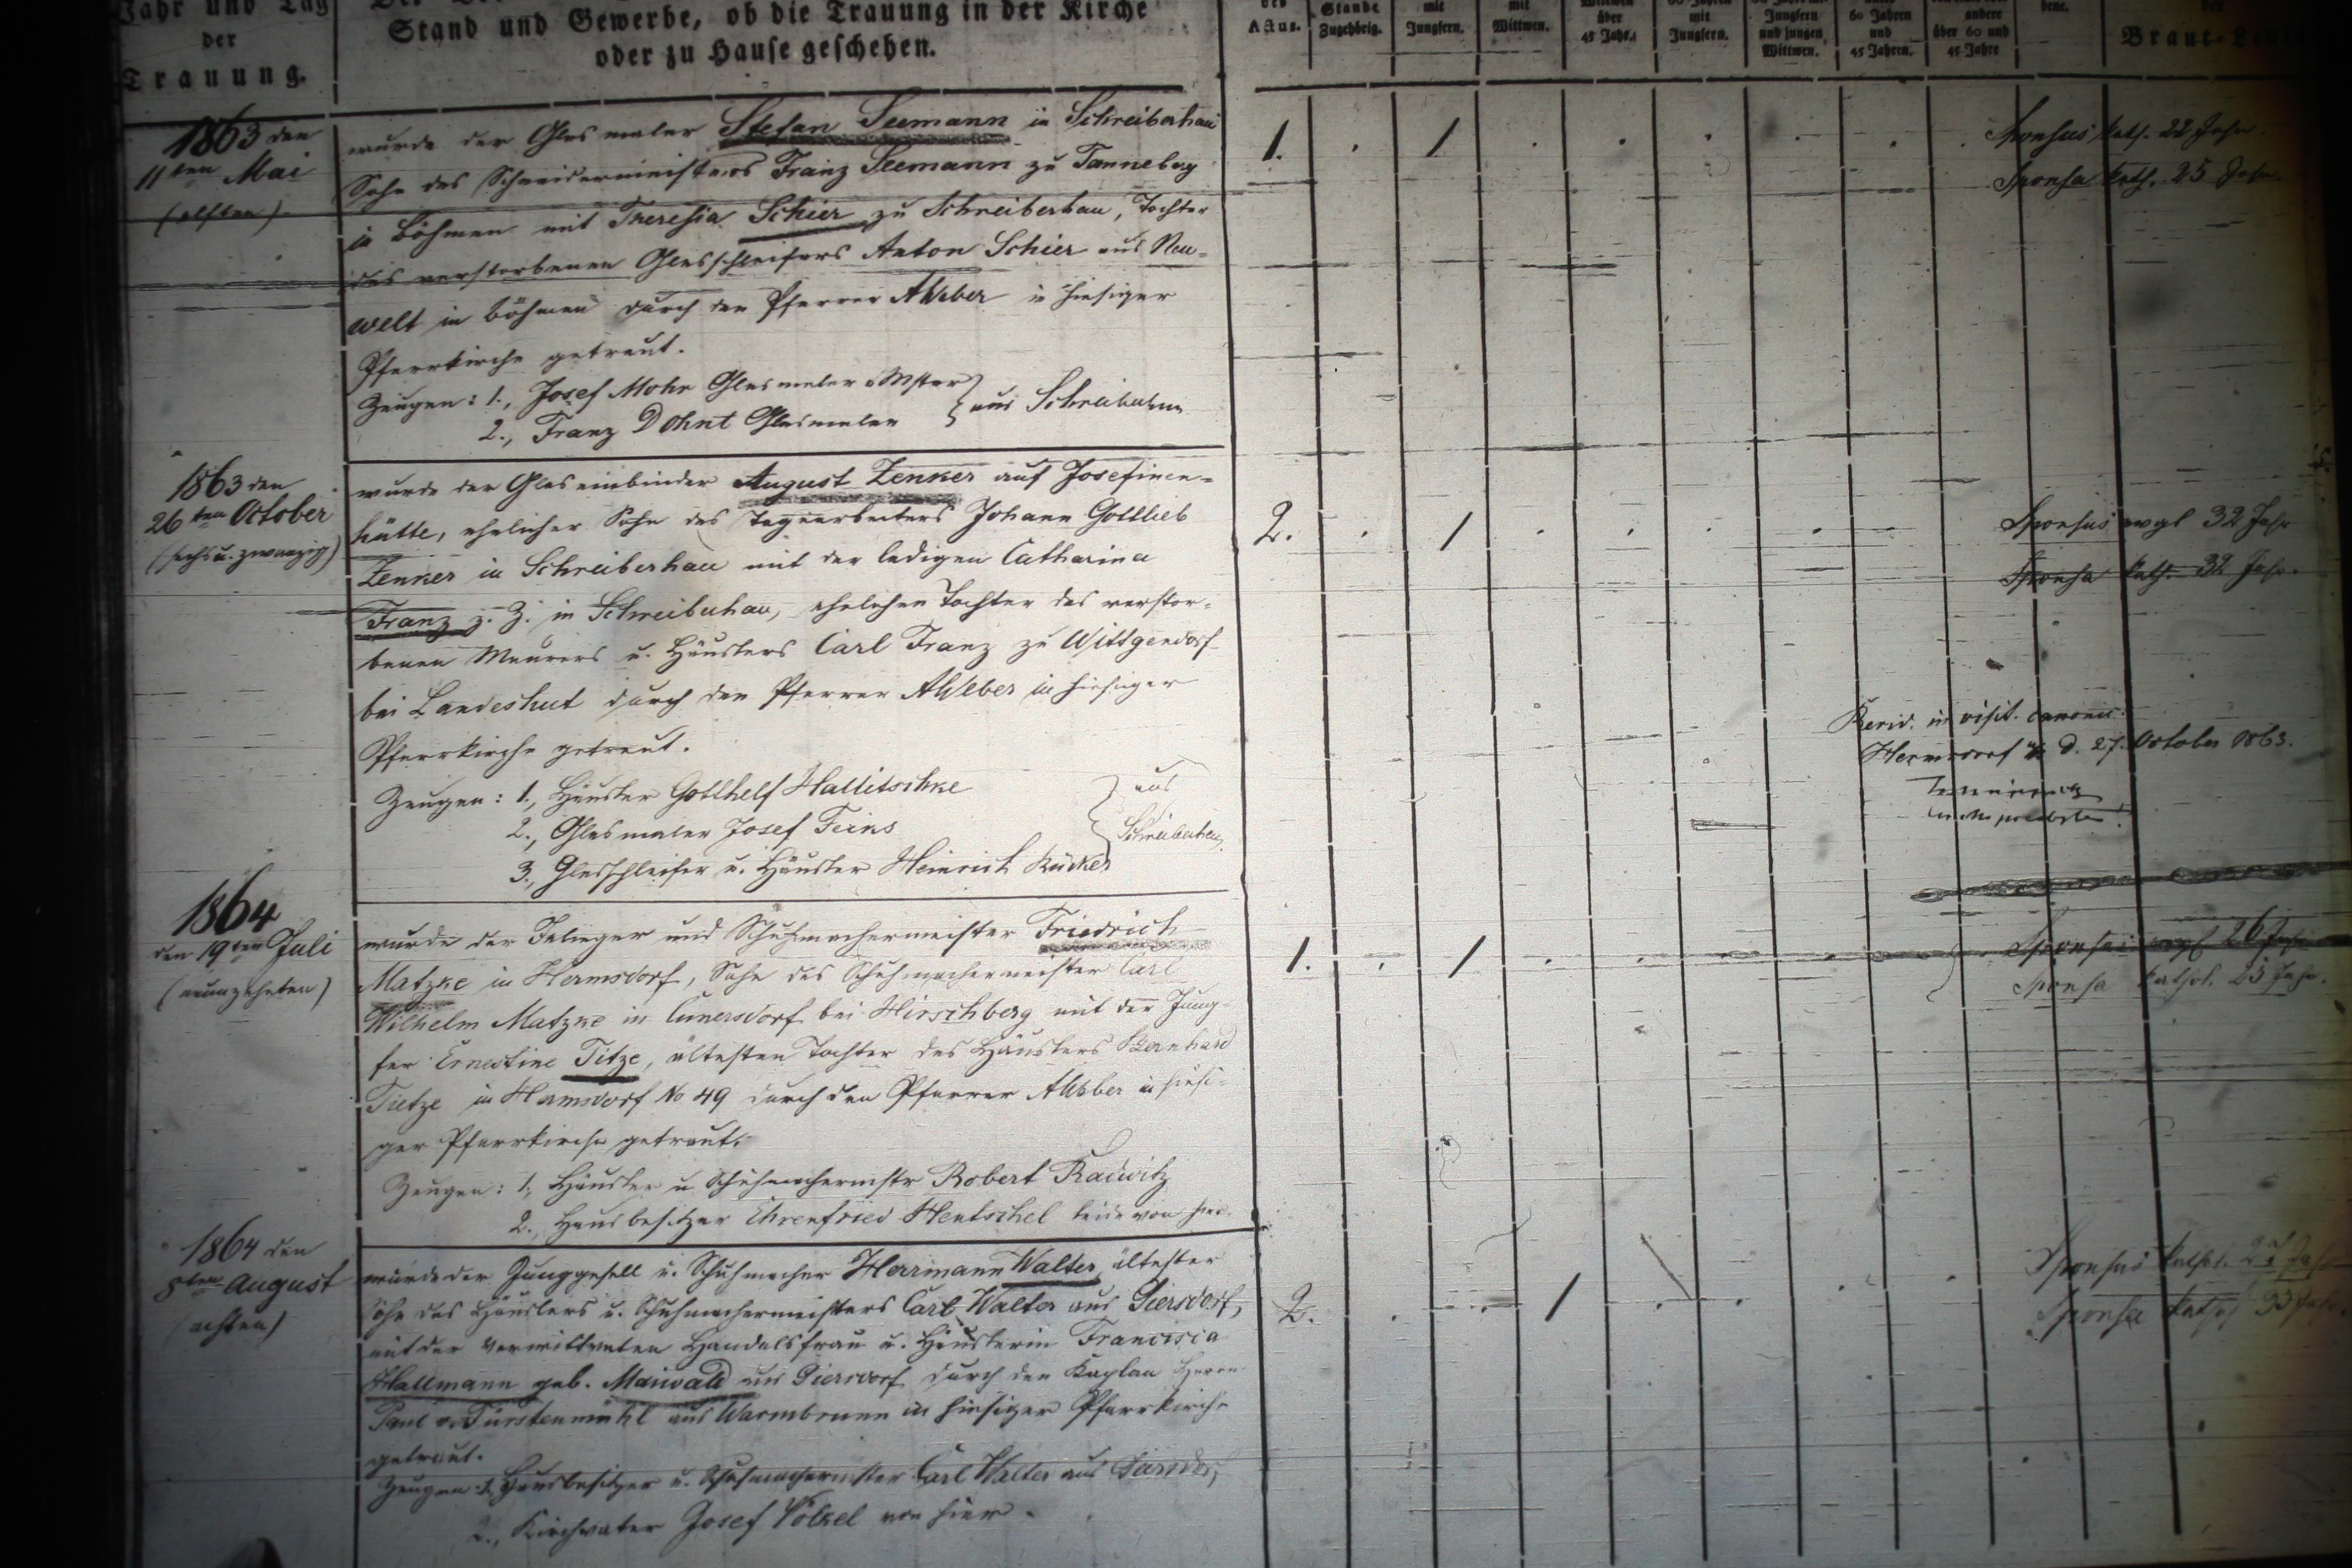 Jahr und Tag
der
Trauung.
Stand und Gewerbe, ob die Trauung in der Kirche
oder zu Hause geschehen.
Actus.
Stande
Zugehörig.
mit
Jungfern.
mit
Wittwen.
über
45 Jahr.
mit
Jungfern.
Jungfern
und jungen
Wittwen.
60 Jahren
und
45 Jahren.
andere
über 60 und
45 Jahre
der
Braut-
1863 den
11ten Mai
(elften)
wurde der Glasmaler Stefan Seemann in Schreiberhau
Sohn des Schneidermeisters Franz Seemann zu Tanneberg
in Böhmen mit Theresia Schier zu Schreiberhau, Tochter
des verstorbenen Glasschleifers Anton Schier aus Neu-
welt in Böhmen durch den Pfarrer AWeber in hiesiger
Pfarrkirche getraut.
Zeugen: 1., Josef Mohr Glasmaler Mster
2., Franz Dohnt Glasmaler
aus Schreiberhau
1.
Sponsus kath. 22 Jahr.
Sponsa kath. 25 Jahr.
1863 den
26ten October
(sechs u. zwanzig)
wurde der Glaseinbinder August Zenker auf Josefinen-
hütte, ehelicher Sohn des Tagearbeiters Johann Gottlieb
Zenker in Schreiberhau mit der ledigen Catharina
Franz z. Z. in Schreiberhau, ehelichen Tochter des verstor-
benen Maurers u. Häuslers Carl Franz zu Wittgendorf
bei Landeshut durch den Pfarrer AWeber in hiesiger
Pfarrkirche getraut.
Zeugen: 1., Häusler Gotthelf Hallitschke
2., Glasmaler Josef Feiks
3., Glasschleifer u. Häusler Heinrich Rücker
aus
Schreiberhau
2.
Sponsus evgl 32 Jahr
Sponsa kath. 32 Jahr.
in visit. canonic.
Hermsdorf d. 27. October 1863.
1864
den 19ten Juli
(neunzehnten)
wurde der Inlieger und Schuhmachermeister Friedrich
Matzke in Hermsdorf, Sohn des Schuhmachermeister Carl
Wilhelm Matzke in Cunersdorf bei Hirschberg mit der Jung-
fer Ernestine Titze, ältesten Tochter des Häuslers Bernhard
Tietze in Hermsdorf No 49 durch den Pfarrer AWeber in hiesi-
ger Pfarrkirche getraut.
Zeugen: 1., Häusler u Schuhmachermstr Robert Radwitz
2., Hausbesitzer Ehrenfried Hentschel beide von hier.
1.
evgl 26 Jahr
Sponsa kathol. 25 Jahr.
1864 den
8ten August
(achten)
wurde der Junggesell u. Schuhmacher Herrmann Walter, ältester
Sohn des Häuslers u. Schuhmachermeisters Carl Walter aus Giersdorf,
mit der verwittweten Handelsfrau u. Häuslerin Francisca
Hallmann geb. Maiwald aus Giersdorf durch den Kaplan Herrn
Paul v. Fürstenmühl aus Warmbrunn in hiesiger Pfarrkirche
getraut.
Zeugen: 1., Hausbesitzer u. Schuhmachermster Carl Walter aus Giersdorf
2., Kirchvater Josef Völkel von hier.
2.
Sponsus kathol.
Sponsa kathol